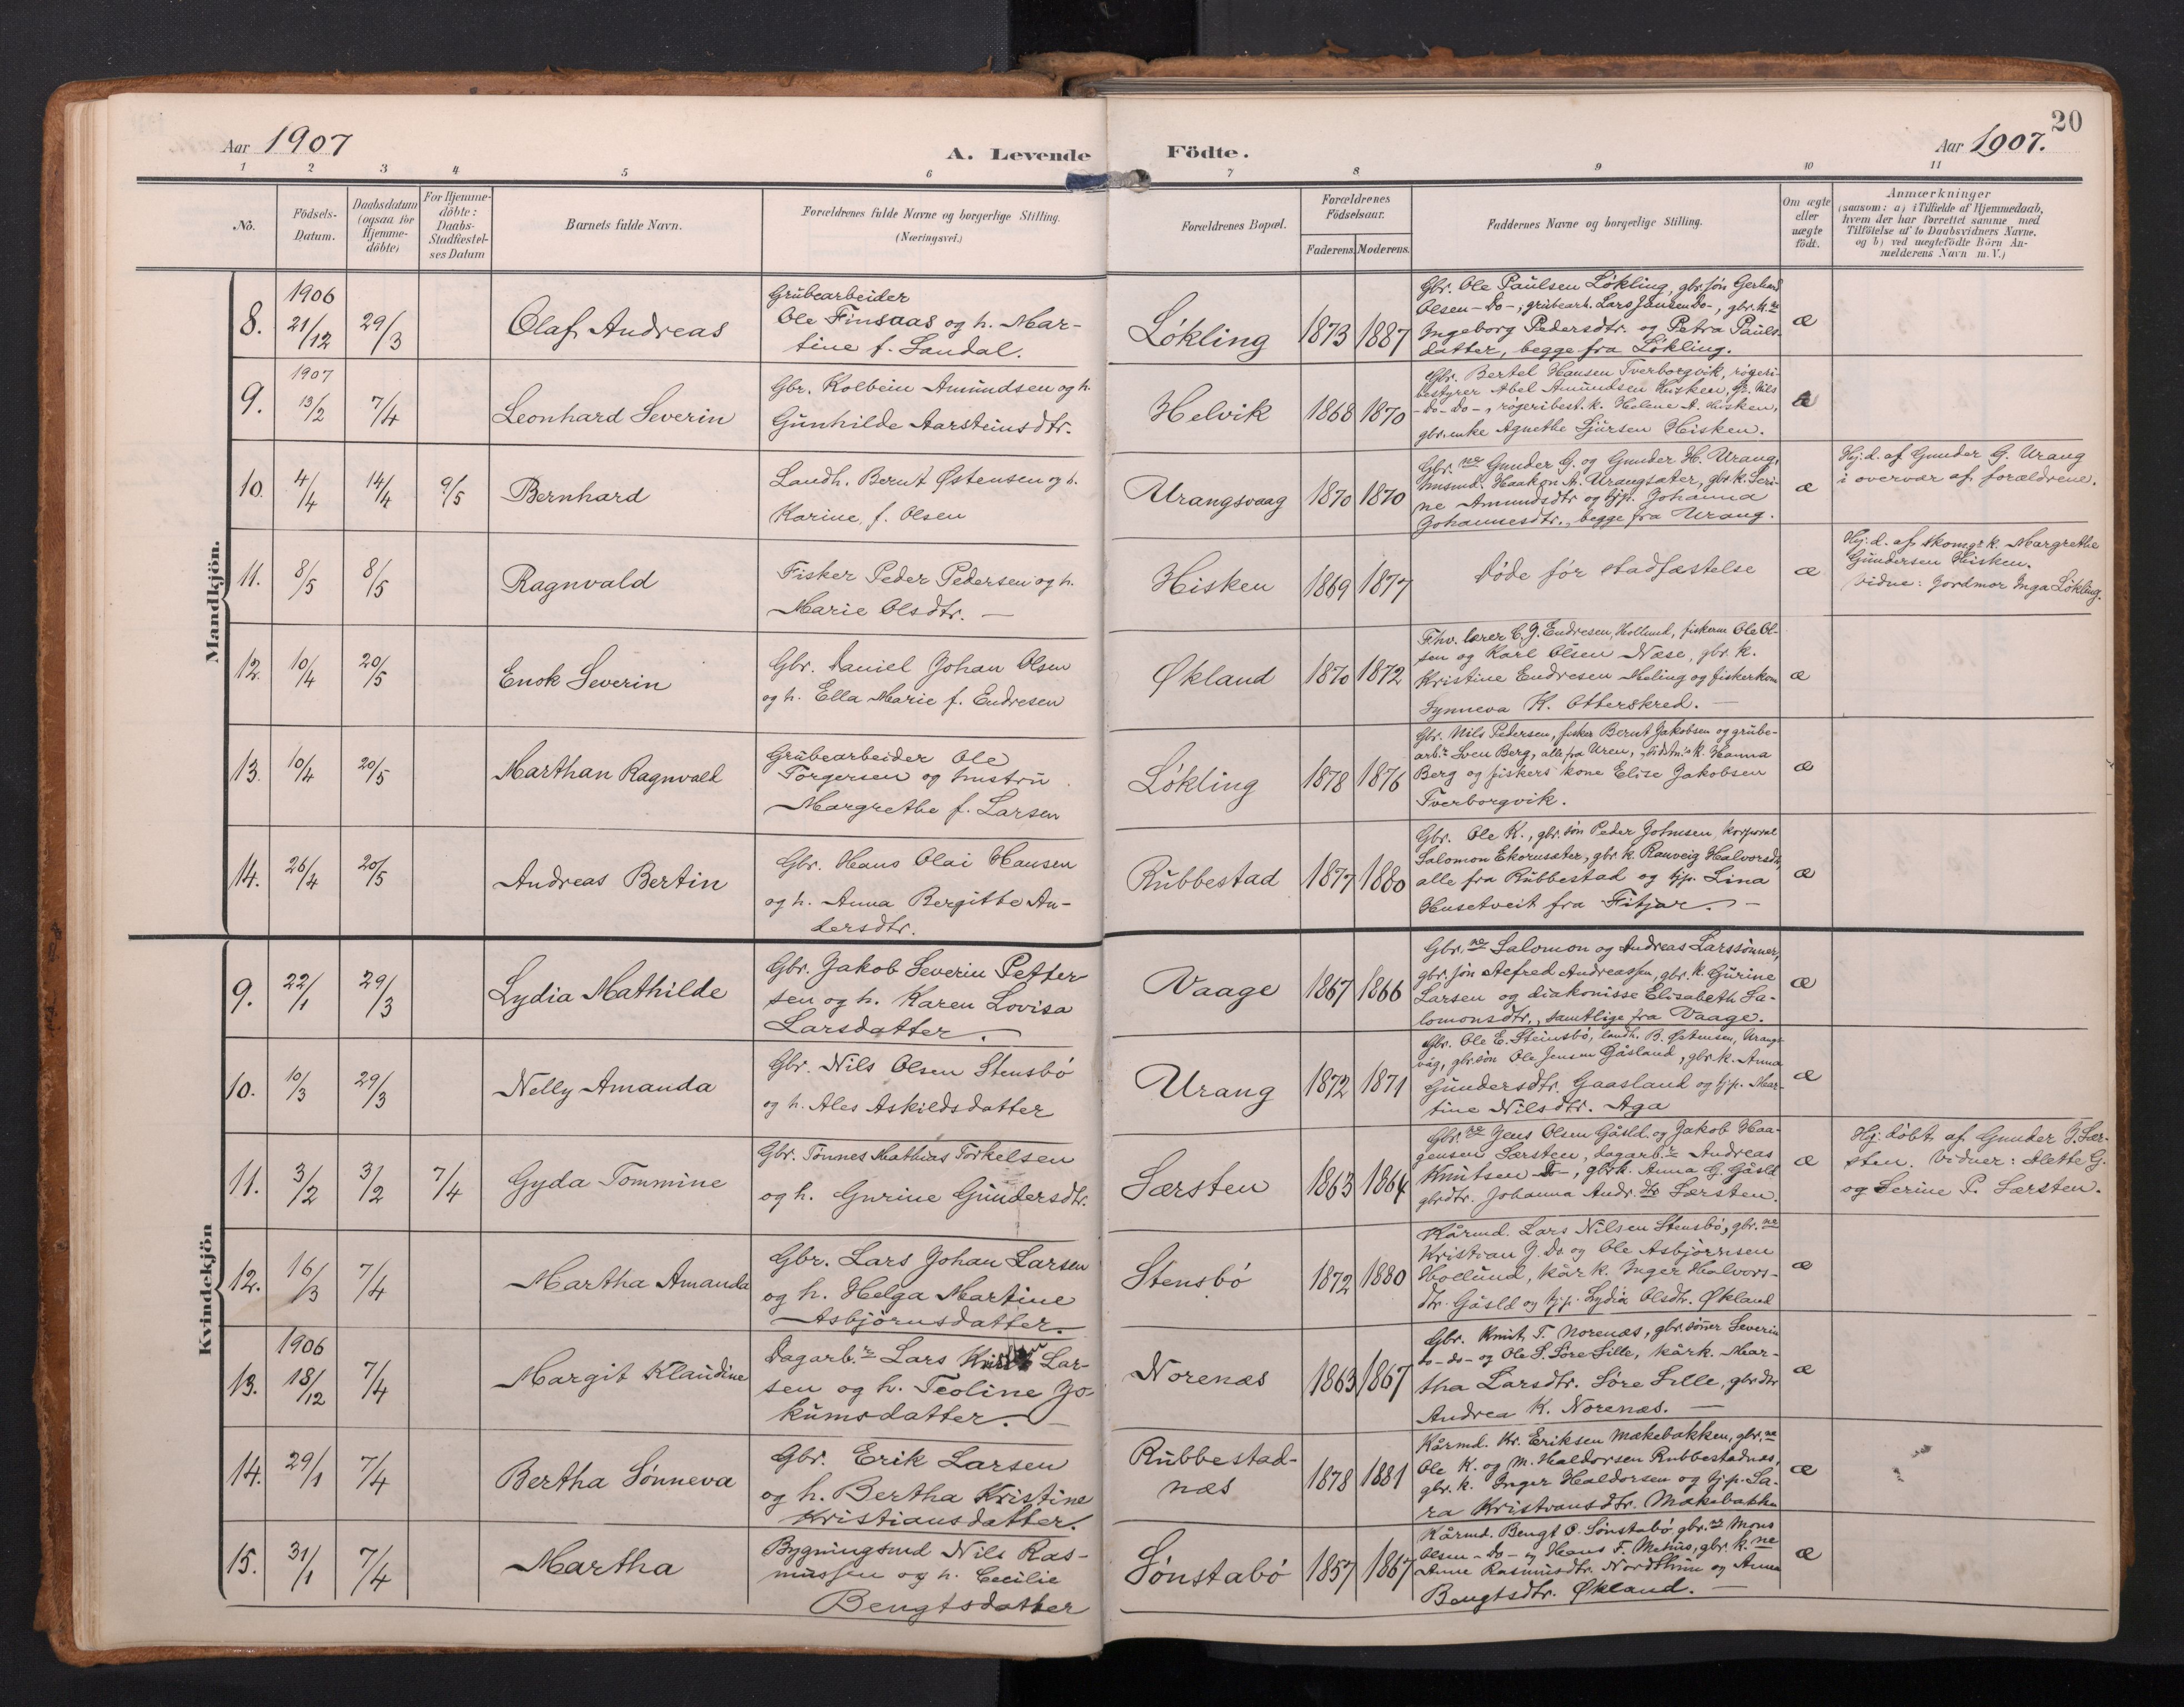 20
Aar 1907
A. Levende Födte.
Aar 1907.
1 2 3 4 5 6 7 8 9 10 11
No.
Födsels-
Datum.
Daabsdatum
(ogsaa for
Hjemme-
döbte)
For Hjemme-
döbte:
Daabs-
Stadfæstel-
ses Datum
Barnets fulde Navn.
Forældrenes fulde Navne og borgerlige Stilling.
(Næringsvei.)
Forældrenes Bopæl.
Forældrenes
Födselsaar.
Faderens. Moderens.
Faddernes Navne og borgerlige Stilling.
Om ægte
eller
uægte
födt.
Anmærkninger
(saasom: a) i Tilfælde af Hjemmedaab,
hvem der har forrettet samme med
Tilföielse af to Daabsvidners Navne.
og b) ved uægtefödte Börn An-
melderens Navn m. V.)
Mandkjön.
8.
1906
21/12
29/3
Olaf Andreas
Grubearbeider
Ole Finsaas og h. Mar-
tine f. Sandal.
Løkling
1873 1887
Gbr. Ole Paulsen Løkling, gbr. søn Gerhard
Olsen - Do -, grubearb. Lars Jansen Do -, gbr. k.ne
Ingeborg Pedersdtr. og Petra Pauls-
datter, begge fra Løkling.
æ
9.
1907
13/2
7/4
Leonhard Severin
Gbr. Kolbein Amundsen og h.
Gunhilde Aarsteinsdtr.
Helvik
1868 1870
Gbr. Bertel Hansen Tverborgvik, røgeri-
bestyrer Abel Amundsen Hisken, Nils
- do - do -, røgeribest. k. Helene A. Hisken,
gbr. enke Agnethe Sjursen Hisken.
æ
10.
4/4
14/4
9/5
Bernhard
Landh. Bernt Østensen og h.
Karine, f. Olsen
Urangsvaag
1870 1870
Gbr.ne Gunder G. og Gunder H. Urang,
Haakon A. Urangsater, gbr. k. Seri-
ne Amundsdtr og tjp. Johanna
Johannesdtr., begge fra Urang.
æ
Hj. d. af Gunder G. Urang
i overvær af forældrene.
11.
8/5
8/5
Ragnvald
Fisker Peder Pedersen og h.
Marie Olsdtr. —
Hisken
1869 1877
Døde før stadfæstelse
æ
Hj. d. af skomgr. k. Margrethe
Gundersen Hisken.
Vidne: Jordmor Inga Løkling.
12.
10/4
20/5
Enok Severin
Gbr. Daniel Johan Olsen
og h. Ella Marie f. Endresen
Økland
1870 1872
Fhv. lærer C. J. Endresen, Hollund, fiskerne Ole Ol-
sen og Karl Olsen Næse, gbr. k.
Kristine Endresen Meling og fiskerkone
Synneva K. Otterskred. —
æ
13.
10/4
20/5
Marthan Ragnvald
Grubearbeider Ole
Torgersen og hustru
Margrethe f. Larsen
Løkling
1878 1876
Gbr. Nils Pedersen, fisker Bernt Jakobsen og grube-
arb.r Sven Berg, alle fra Uren, k. Hanna
Berg og fiskers kone Elise Jakobsen
Tverborgvik.
æ
14.
26/4
20/5
Andreas Bertin
Gbr. Hans Olai Hansen
og h. Anna Bergitte An-
dersdtr.
Rubbestad
1877 1880
Gbr. Ole K., gbr. søn Peder Johnsen, korporal
Salomon Ekornsæter, gbr. k. Ranveig Halvorsdtr,
alle fra Rubbestad og tjp. Lina
Husetveit fra Fitjar. —
æ
Kvindekjön
9.
22/1
29/3
Lydia Mathilde
Gbr. Jakob Severin Petter-
sen og h. Karen Lovisa
Larsdatter.
Vaage
1867 1866
Gbr.ne Salomon og Andreas Larssønner,
gbr. søn Alfred Andreassen, gbr. k. Gurine
Larsen og diakonisse Elisabeth Sa-
lomonsdtr., samtlige fra Vaage.
æ
10.
10/3
29/3
Nelly Amanda
Gbr. Nils Olsen Stensbø
og h. Ales Askildsdatter
Urang
1872 1871
Gbr. Ole E. Steinsbø, landh. B. Østensen, Urangs-
våg, gbr. søn Ole Jensen Gåsland, gbr. k. Anna
Gundersdtr. Gaasland og tjp. Mar-
tine Nilsdtr. Aga
æ
11.
3/2
3/2
7/4
Gyda Tommine
Gbr. Tønnes Mathias Torkelsen
og h. Gurine Gundersdtr.
Særsten
1863 1864
Gbr.ne Jens Olsen Gåsld. og Jakob Haa-
gensen Særsten, dagarb.r Andreas
Knutsen - Do -, gbr. k. Anna G. Gåsld
gbrdtr. Johanna Andr.dtr Særsten.
æ
Hj. døbt af Gunder J. Sær-
sten. Vidner: Alette G.
og Serine P. Særsten.
12.
16/3
7/4
Martha Amanda
Gbr. Lars Johan Larsen
og h. Helga Martine
Asbjørnsdatter.
Stensbø
1872 1880
Kårmd. Lars Nilsen Stensbø, gbr.ne
Kristian J. Do. og Ole Asbjørnsen
Hollund, kår k. Inger Halvors-
dtr. Gåsld og tjp. Lydia Olsdtr. Økland
æ
13.
1906
18/12
7/4
Margit Klaudine
Dagarb.r Lars Lar-
sen og h. Teoline Jo-
kumsdatter. —
Norenæs
1863 1867
Gbr. Knut T. Norenæs, gbr. sønner Severin
do - do - og Ole S. Søre Lille, kårk. Mar-
tha Larsdtr. Søre Lille, gbrdtr
Andrea K. Norenæs. —
æ
14.
29/1
7/4
Bertha Sønneva
Gbr. Erik Larsen
og h. Bertha Kristine
Kristiansdatter.
Rubbestad-
næs
1878 1881
Kårmd. Kr. Eriksen Mækebakken, gbr.ne
Ole K. og M. Haldorsen Rubbestadnæs,
gbr. k. Inger Haldorsen og tjp. Sa-
ra Kristiansdtr. Mækebakken
æ
15.
31/1
7/4
Martha
Bygningsmd Nils Ras-
mussen og h. Cecilie
Bengtsdatter
Sønstabø
1857 1867
Kårmd. Bengt O. Sønstabø, gbr.ne Mons
Olsen - Do - og Hans F. Mehus, gbr. k.ne
Anne Rasmusdtr. Nordthun og Anna
Bengtsdtr. Økland. —
æ